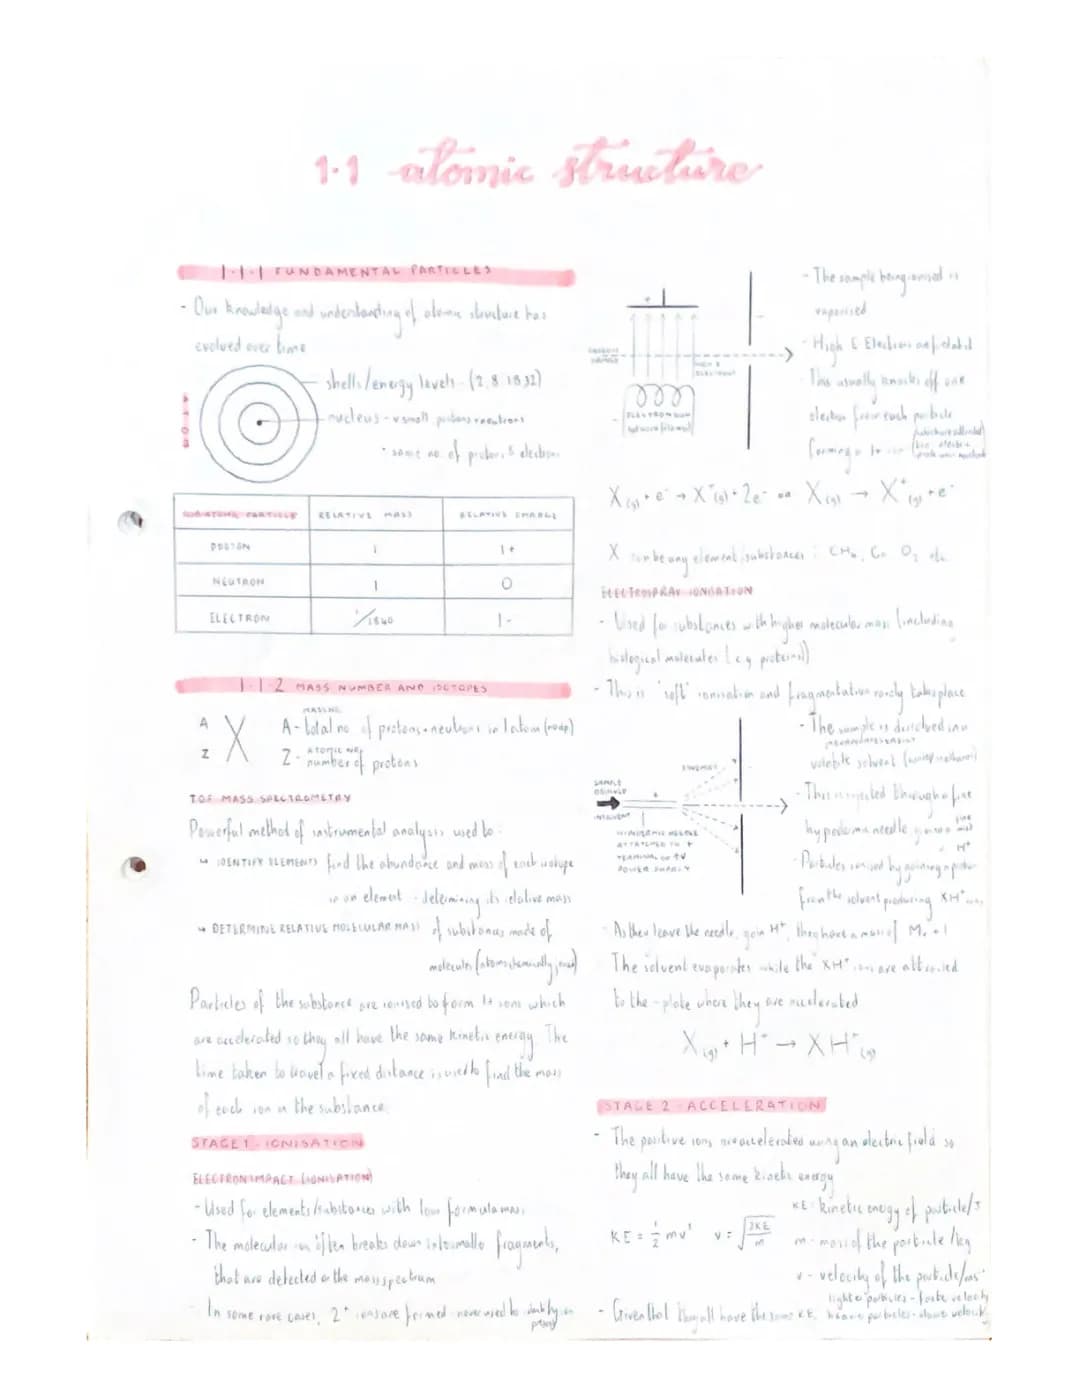 1.1 atomic structure
1.1.1 FUNDAMENTAL PARTICLES
- Our knowledge and understanding of atomic structure has
evolved over time
ATOM
shells/energy levels - (2, 8, 18, 32)
nucleus - v small, protons + neutrons
* same no. of protons & electrons
SUB-ATOMIC PARTICLE RELATIVE MASS RELATIVE CHARGE
PROTON 1 1+
NEUTRON 1 0
ELECTRON 1/1840 1-
1.1.2 MASS NUMBER AND ISOTOPES
A
X
Z
MASS NO.
A - total no. of protons + neutrons in 1 atom
ATOMIC NO.
Z - number of protons
TOF MASS SPECTROMETRY
Powerful method of instrumental analysis used to:
↳ IDENTIFY ELEMENTS find the abundance and mass of each isotope
in an element - determining its relative mass
↳ DETERMINE RELATIVE MOLECULAR MASS of substances made of
molecules (atoms chemically
Particles of the substance are ionised to form 1+ ions which
are accelerated so they all have the same kinetic energy. The
time taken to travel a fixed distance is used to find the mass
of each ion in the substance.
STAGE 1 - IONISATION
ELECTRON IMPACT (IONISATION)
- Used for elements/substances with low formula mass
- The molecular ion often breaks down into smaller fragments,
that are detected on the mass spectrum
- In some rare cases, 2+ ions are formed - never used to identify
- The sample being ionised is
vaporised
- High E Electrons are
- This usually knocks off one
electron from each particle
forming a 1+ ion
HIGH E
ELECTRONS
ELECTRON GUN
(hot wire filament)
X(g) + e⁻ → X⁺(g) + 2e⁻ or X(g) → X⁺(g) + e⁻
X can be any element/substances: CH₄, Co, O₂ etc.
ELECTROSPRAY IONISATION
- Used for substances with higher molecular mass (including
biological molecules (e.g. proteins))
- This is 'soft' ionisation and fragmentation rarely takes place
- The sample is dissolved in a
volatile solvent
- This is injected through a fine
hypodermic needle, giving a fine mist
- Particles ionised by gaining a proton H⁺
from the solvent producing XH⁺ ions
SAMPLE
DISSOLVED
IN SOLVENT
FINE MIST
HYPODERMIC NEEDLE
ATTATCHED TO +
TERMINAL OF ↑V
POWER SUPPLY
- As they leave the needle, gain H⁺, they have a mass of Mr + 1
The solvent evaporates while the XH⁺ ions are attracted
to the - plate where they are accelerated
X(g) + H⁺ → XH⁺(g)
STAGE 2 - ACCELERATION
- The positive ions are accelerated using an electric field so
they all have the same kinetic energy
KE = ½mv² v = √2KE/m
KE - kinetic energy of particle/J
m - mass of the particle/kg
v - velocity of the particle/ms⁻¹
- Given that they all have the same KE, lighter particles - faster velocity
heavier particles - slower velocity